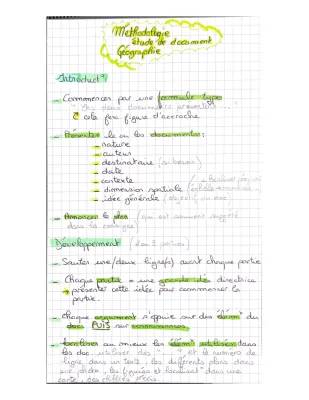 Méthodologie
étude de document
Géographie
Introduct°
- Commencer par une formule type
"Les deux documents présentent..."
↳ cela fera figure d'accroche
- Présenter le ou les documents:
- nature
- auteur
- destinataire (au besoin)
- date
- contexte
- dimension spatiale
- idée générale
- Annoncer le plan (qui est souvent suggéré
dans la consigne)
Développement
- Sauter une/deux ligne(s) avant chaque partie
- Chaque partie = une grande idée directrice
→ présenter cette idée pour commencer la
partie.
- chaque argument s'appuie sur des élém^ts du
doc PUIS sur connaissances.
- localiser au mieux les élém^ts utilisés dans
les doc utiliser des "..." et le numéro de
ligne dans un texte, les différents plans dans
une, les figurés et localisat° dans une
carte, des chiffres précis.